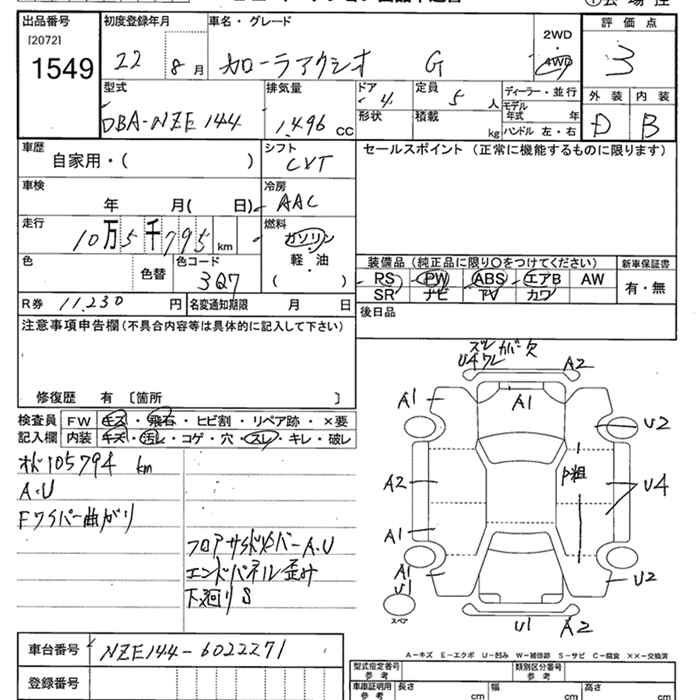 出品番号 初度登録年月 車名・グレード 2WD 評価点
[2072]
1549 22 8月 カローラアクシオ G 4WD 3
型式 排気量 ドア 4 定員 5人 ディーラー・並行 外装 内装
モデル年式 年
DBA-NZE144 1.496 CC 形状 積載 kg ハンドル 左・右 D B
車歴 シフト セールスポイント(正常に機能するものに限ります)
自家用・( ) CVT
車検 冷房
年 月( 日) AAC
走行 燃料
10万5千795km ガソリン
軽・油
色 色替 色コード 3Q7 ( )
装備品(純正品に限り○をつけてください) 新車保証書
RS PW ABS エアB AW 有・無
SR ナビ TV カワ
R券 11,230円 名変通知期限 月 日 後日品
注意事項申告欄(不具合内容等は具体的に記入して下さい)
修復歴 有 〔箇所 〕
検査員 FW キズ・飛石・ヒビ割・リペア跡・×要
記入欄 内装 キズ・汚レ・コゲ・穴・スレ・キレ・破レ
105794km
A.U
Fワイパー曲がり
フロアサイドメンバーA.U
エンドパネル歪み
下廻りS
ズレ カバー欠
U4ワレ A2
A1 A1 U2
A2 P粗 U4
A1
A1 U2
U1
スペア U1 A2
A-キズ E-エクボ U-凹み W-補修跡 S-サビ C-腐食 ××-交換済
車台番号 NZE144-6022271
登録番号
型式指定番号 参考 類別区分番号 参考
車庫証明用 参考 長さ cm 幅 cm 高さ cm